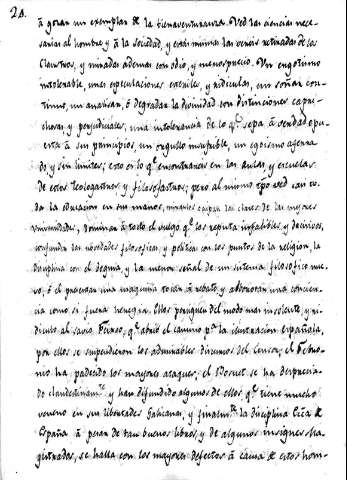 20.
á gozar un exemplar de la bienaventuranza. Ved las ciencias nece-
sarias al hombre y á la sociedad, y esas mismas las vereis retiradas de los
Claustros, y miradas ademas con odio, y menosprecio. Un ergotismo
intolerable, unas especulaciones esteriles, y ridiculas, un soñar con-
tinuo, un analisar, ó degradar la divinidad con distinciones capri-
chosas y perjudiciales, una intolerancia de lo q.e sepa á verdad opu-
esta á sus principios, un orgullo insufrible, un egoismo
do y sin limites; esto es lo q.e encontrareis en las aulas, y escuelas
de estos teologastros y filosofastros; pero al mismo tpo ved
da la educacion en sus manos, miradlos ocupar las claves de las mejores
universidades, dominan á todo el vulgo q.e los reputa infalibles, y decisivos,
confundir las novedades filosoficas, y politicas con los puntos de la religion, la
disciplina con el dogma, y la menor señal de un sistema filosofico nue-
vo, ó el presentar una maquina tocan á rebato, y alborotan una concien-
cia como si fuera heregia. Ellos persiguen del modo mas insolente, y ri-
diculo al savio Feixoo, q.e abrió el camino p.a la ilustración Española,
por ellos se suspendieron los admirables discursos del Censor; el Febro-
nio ha padecido los mayores ataques; el Bosuet se ha
de clandestinam.te y han difundido algunos de ellos q.e tiene mucho
veneno en sus libertades Galicanas; y finalm.te la disciplina Ecc.a de
España á pesar de tan buenos libros, y de algunos insignes Ma-
gistrados, se halla con los mayores defectos á causa de estos hom-